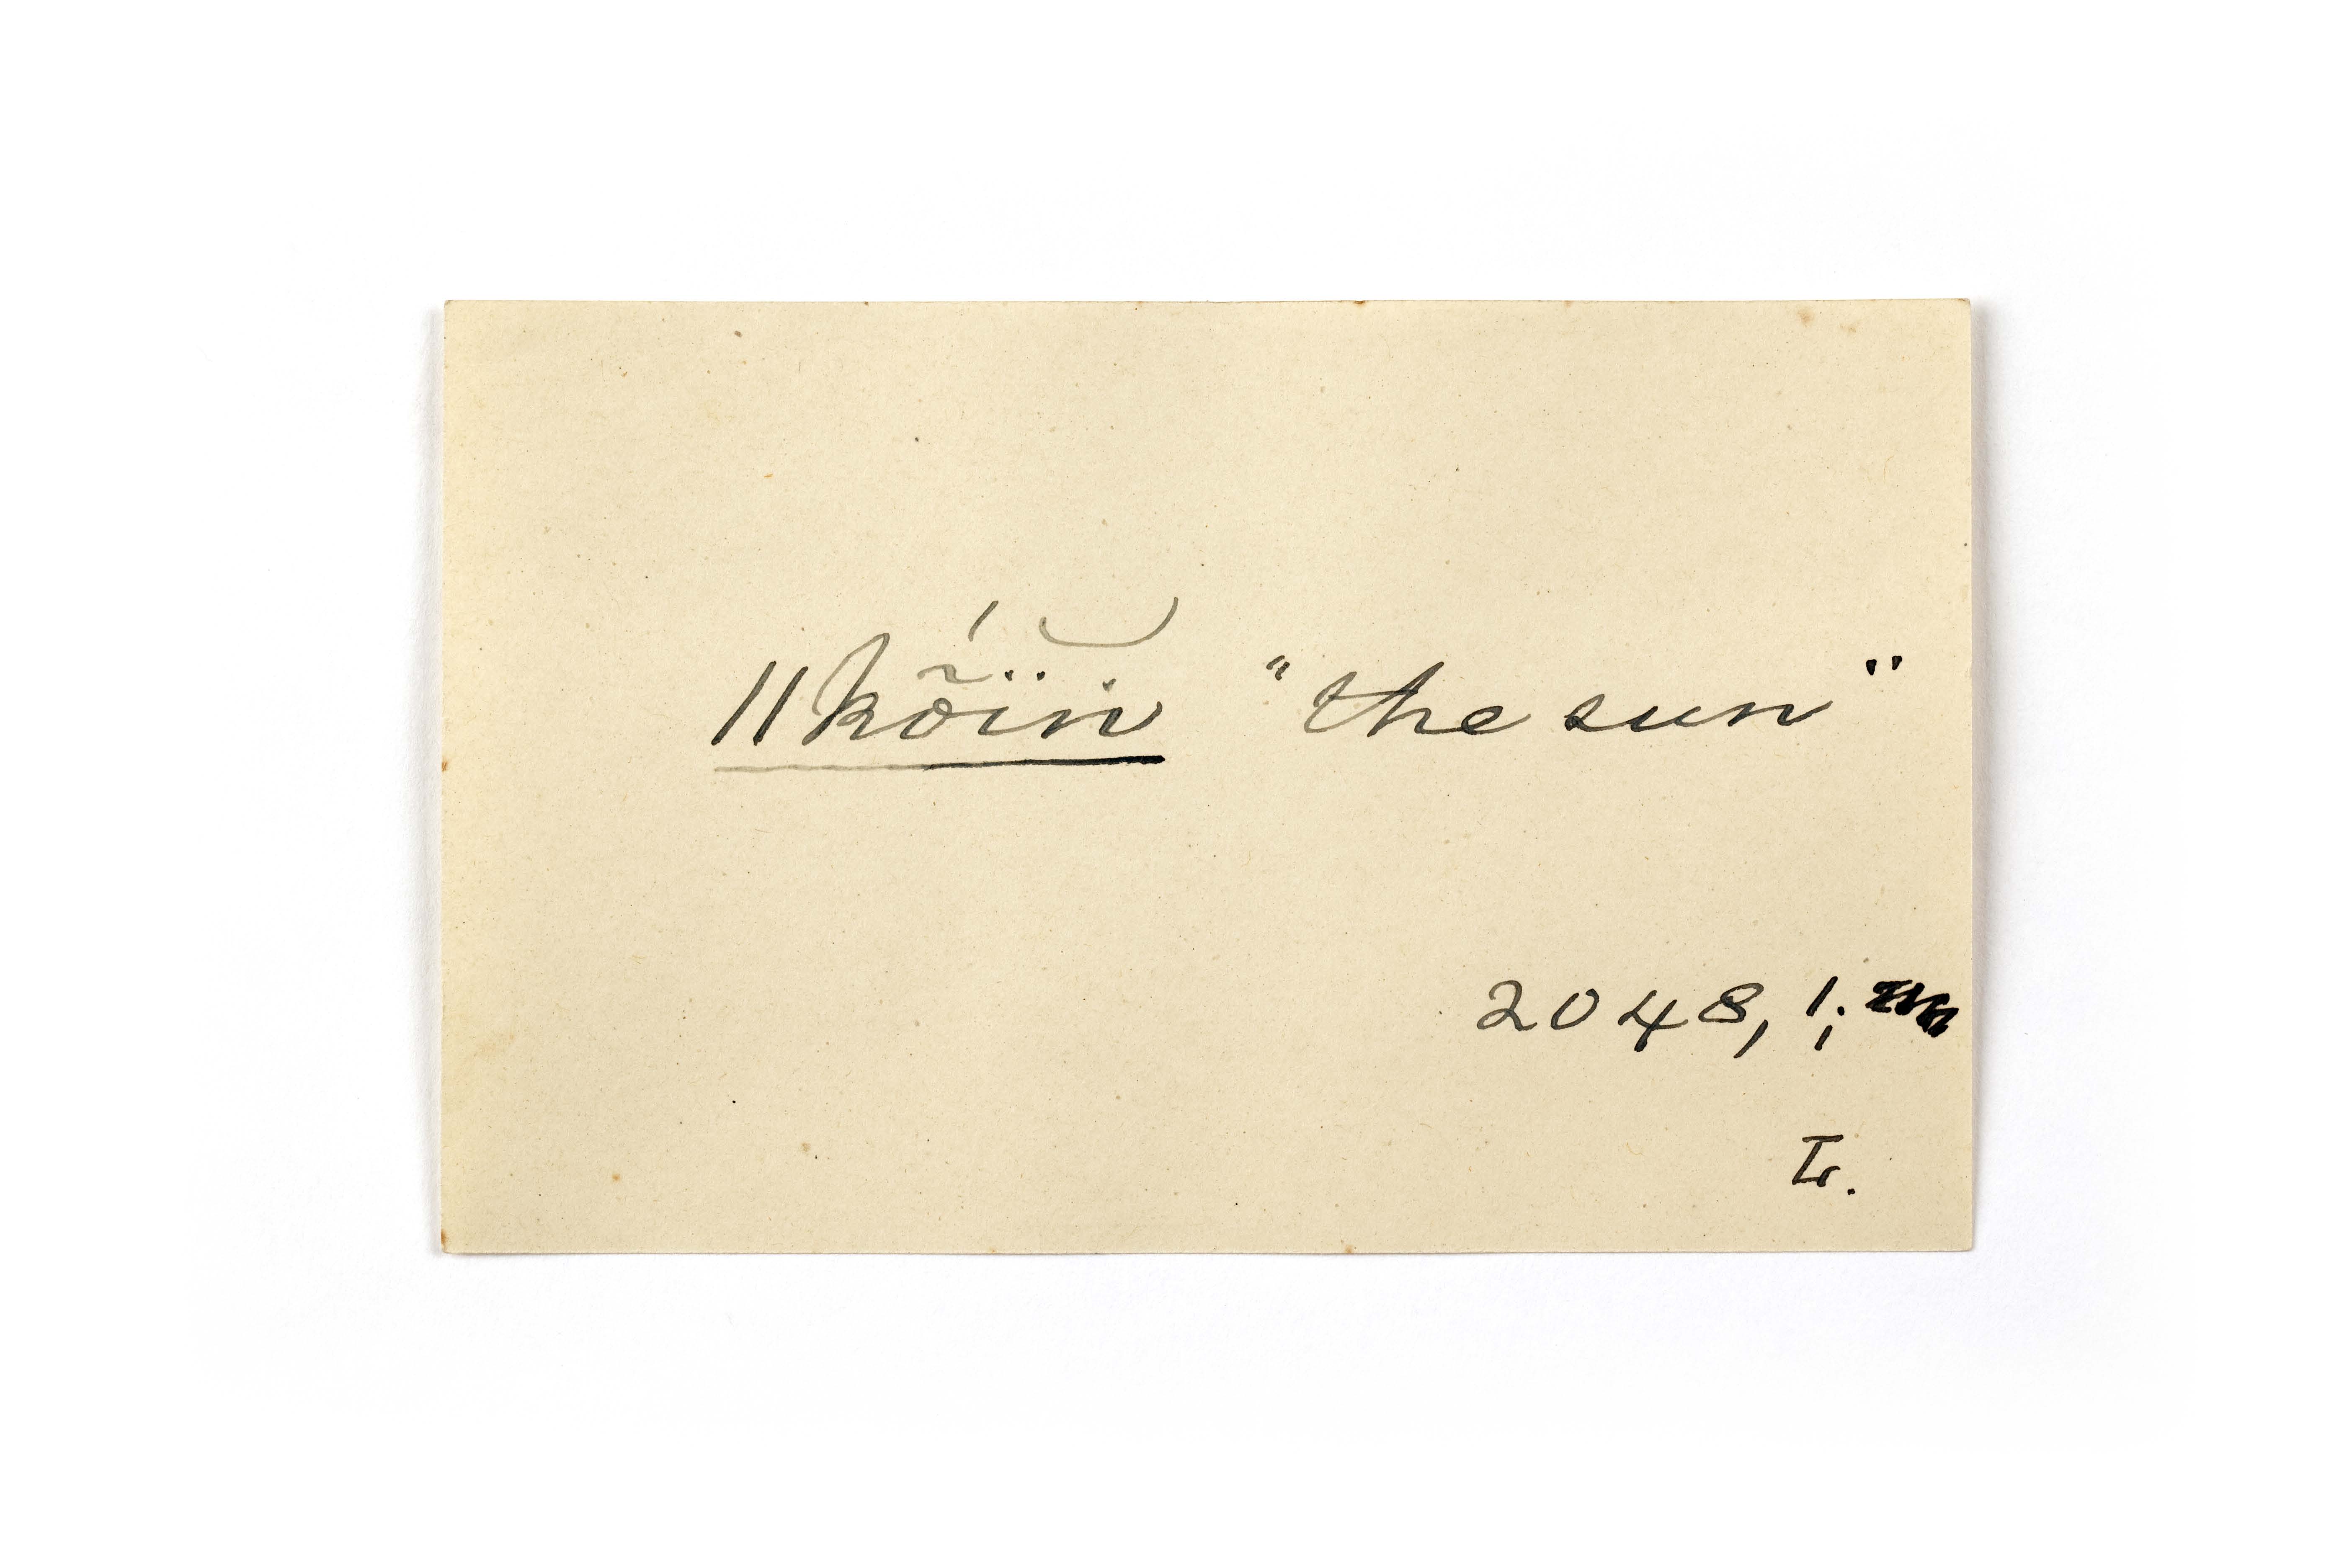 ǁkṏ́ïn̆ "the sun"
2048, 1;
L.